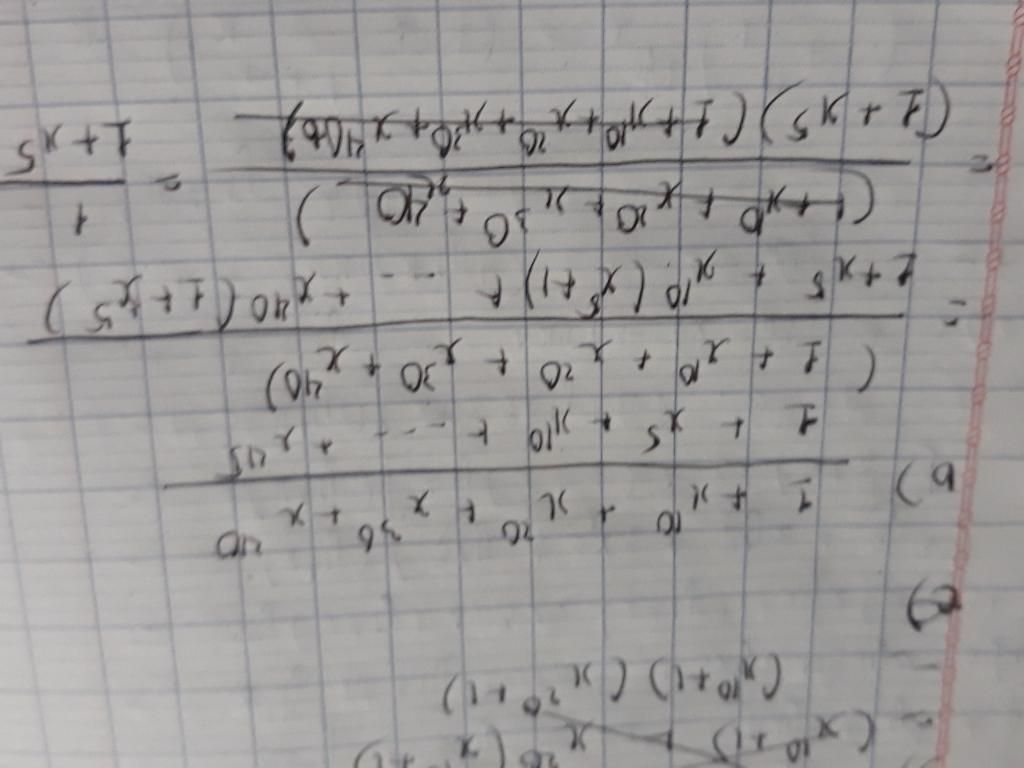 (x¹⁰+1) x²⁰(x¹⁰+1)
= (x¹⁰+1) (x²⁰+1)
c)
1 + x¹⁰ + x²⁰ + x³⁰ + x⁴⁰
b)
1 + x⁵ + x¹⁰ + ... + x⁴⁵
(1 + x¹⁰ + x²⁰ + x³⁰ + x⁴⁰)
= 1+x⁵ + x¹⁰(x⁵+1) + ... + x⁴⁰(1+x⁵)
(1+x¹⁰ + x²⁰ + x³⁰ + x⁴⁰) 1
= (1+x⁵) (1+x¹⁰+x²⁰+x³⁰+x⁴⁰) = 1+x⁵